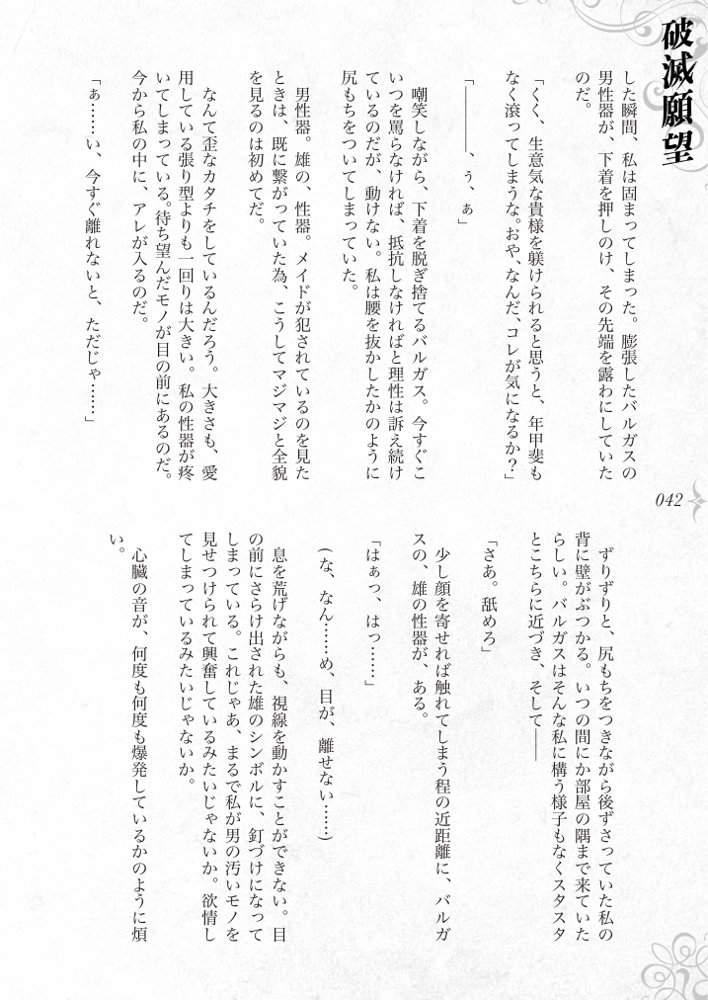 破滅願望
した瞬間、私は固まってしまった。膨張したバルガスの
男性器が、下着を押しのけ、その先端を露わにしていた
のだ。
「くく、生意気な貴様を躾けられると思うと、年甲斐も
なく滾ってしまうな。おや、なんだ、コレが気になるか?」
「―――、ぅ、ぁ」
嘲笑しながら、下着を脱ぎ捨てるバルガス。今すぐこ
いつを罵らなければ、抵抗しなければと理性は訴え続け
ているのだが、動けない。私は腰を抜かしたかのように
尻もちをついてしまっていた。
男性器。雄の、性器。メイドが犯されているのを見た
ときは、既に繋がっていた為、こうしてマジマジと全貌
を見るのは初めてだ。
なんて歪なカタチをしているんだろう。大きさも、愛
用している張り型よりも一回りは大きい。私の性器が疼
いてしまっている。待ち望んだモノが目の前にあるのだ。
今から私の中に、アレが入るのだ。
「ぁ……い、今すぐ離れないと、ただじゃ……」
042
ずりずりと、尻もちをつきながら後ずさっていた私の
背に壁がぶつかる。いつの間にか部屋の隅まで来ていた
らしい。バルガスはそんな私に構う様子もなくスタスタ
とこちらに近づき、そして――
「さあ。舐めろ」
少し顔を寄せれば触れてしまう程の近距離に、バルガ
スの、雄の性器が、ある。
「はぁっ、はっ……」
(な、なん……め、目が、離せない……)
息を荒げながらも、視線を動かすことができない。目
の前にさらけ出された雄のシンボルに、釘づけになって
しまっている。これじゃあ、まるで私が男の汚いモノを
見せつけられて興奮しているみたいじゃないか。欲情し
てしまっているみたいじゃないか。
心臓の音が、何度も何度も爆発しているかのように煩
い。